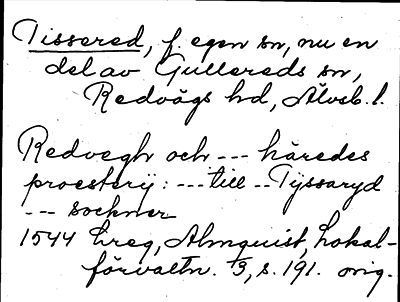 Tissered, f. egen sn, nu en
del av Gullereds sn,
Redvägs hd, Älvsb. l.
Redvegh och --- häredes
proesterij: --- till -- Tÿssaryd
--- sockner
1544 Lreg, Almquist, Lokal-
förvaltn. /3, s. 191. orig.